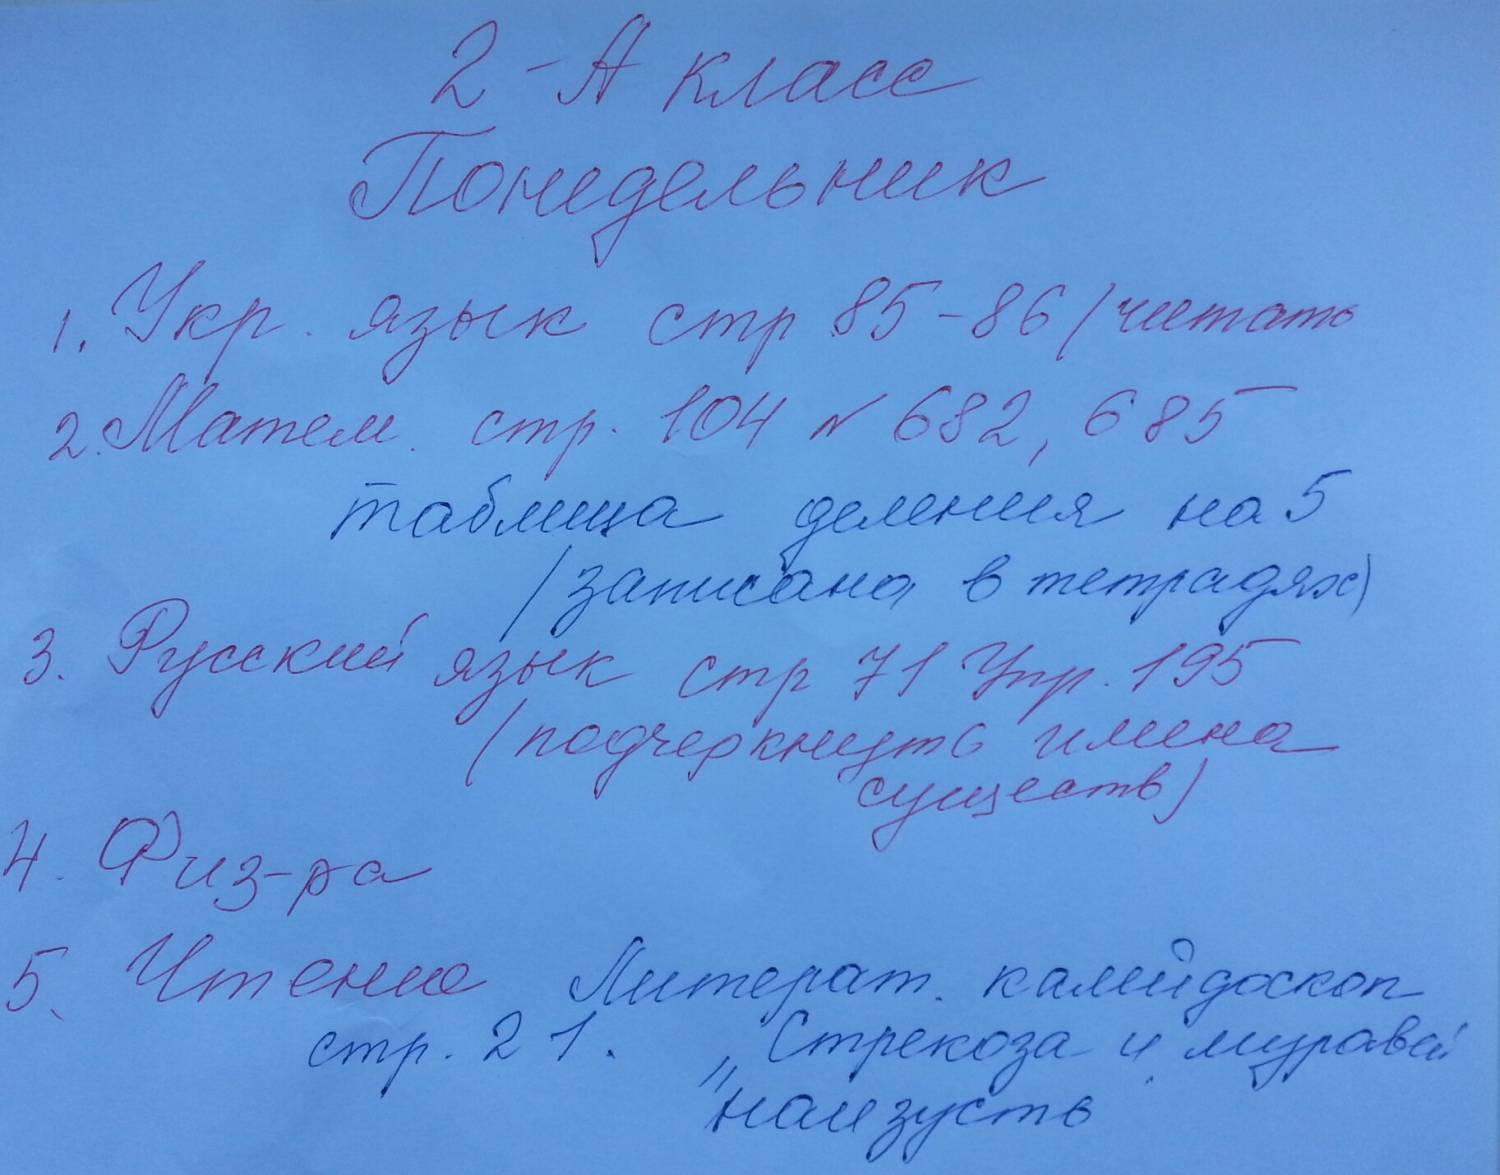 2-А класс
Понедельник
1. Укр. язык стр 85-86 (читать
2. Матем. стр. 104 № 682, 685
таблица деления на 5
(записана в тетрадях)
3. Русский язык стр 71 Упр. 195
(подчеркнуть имена
существ)
4. Физ-ра
5. Чтение Литерат. калейдоскоп
стр. 21. „Стрекоза и муравей
"наизусть